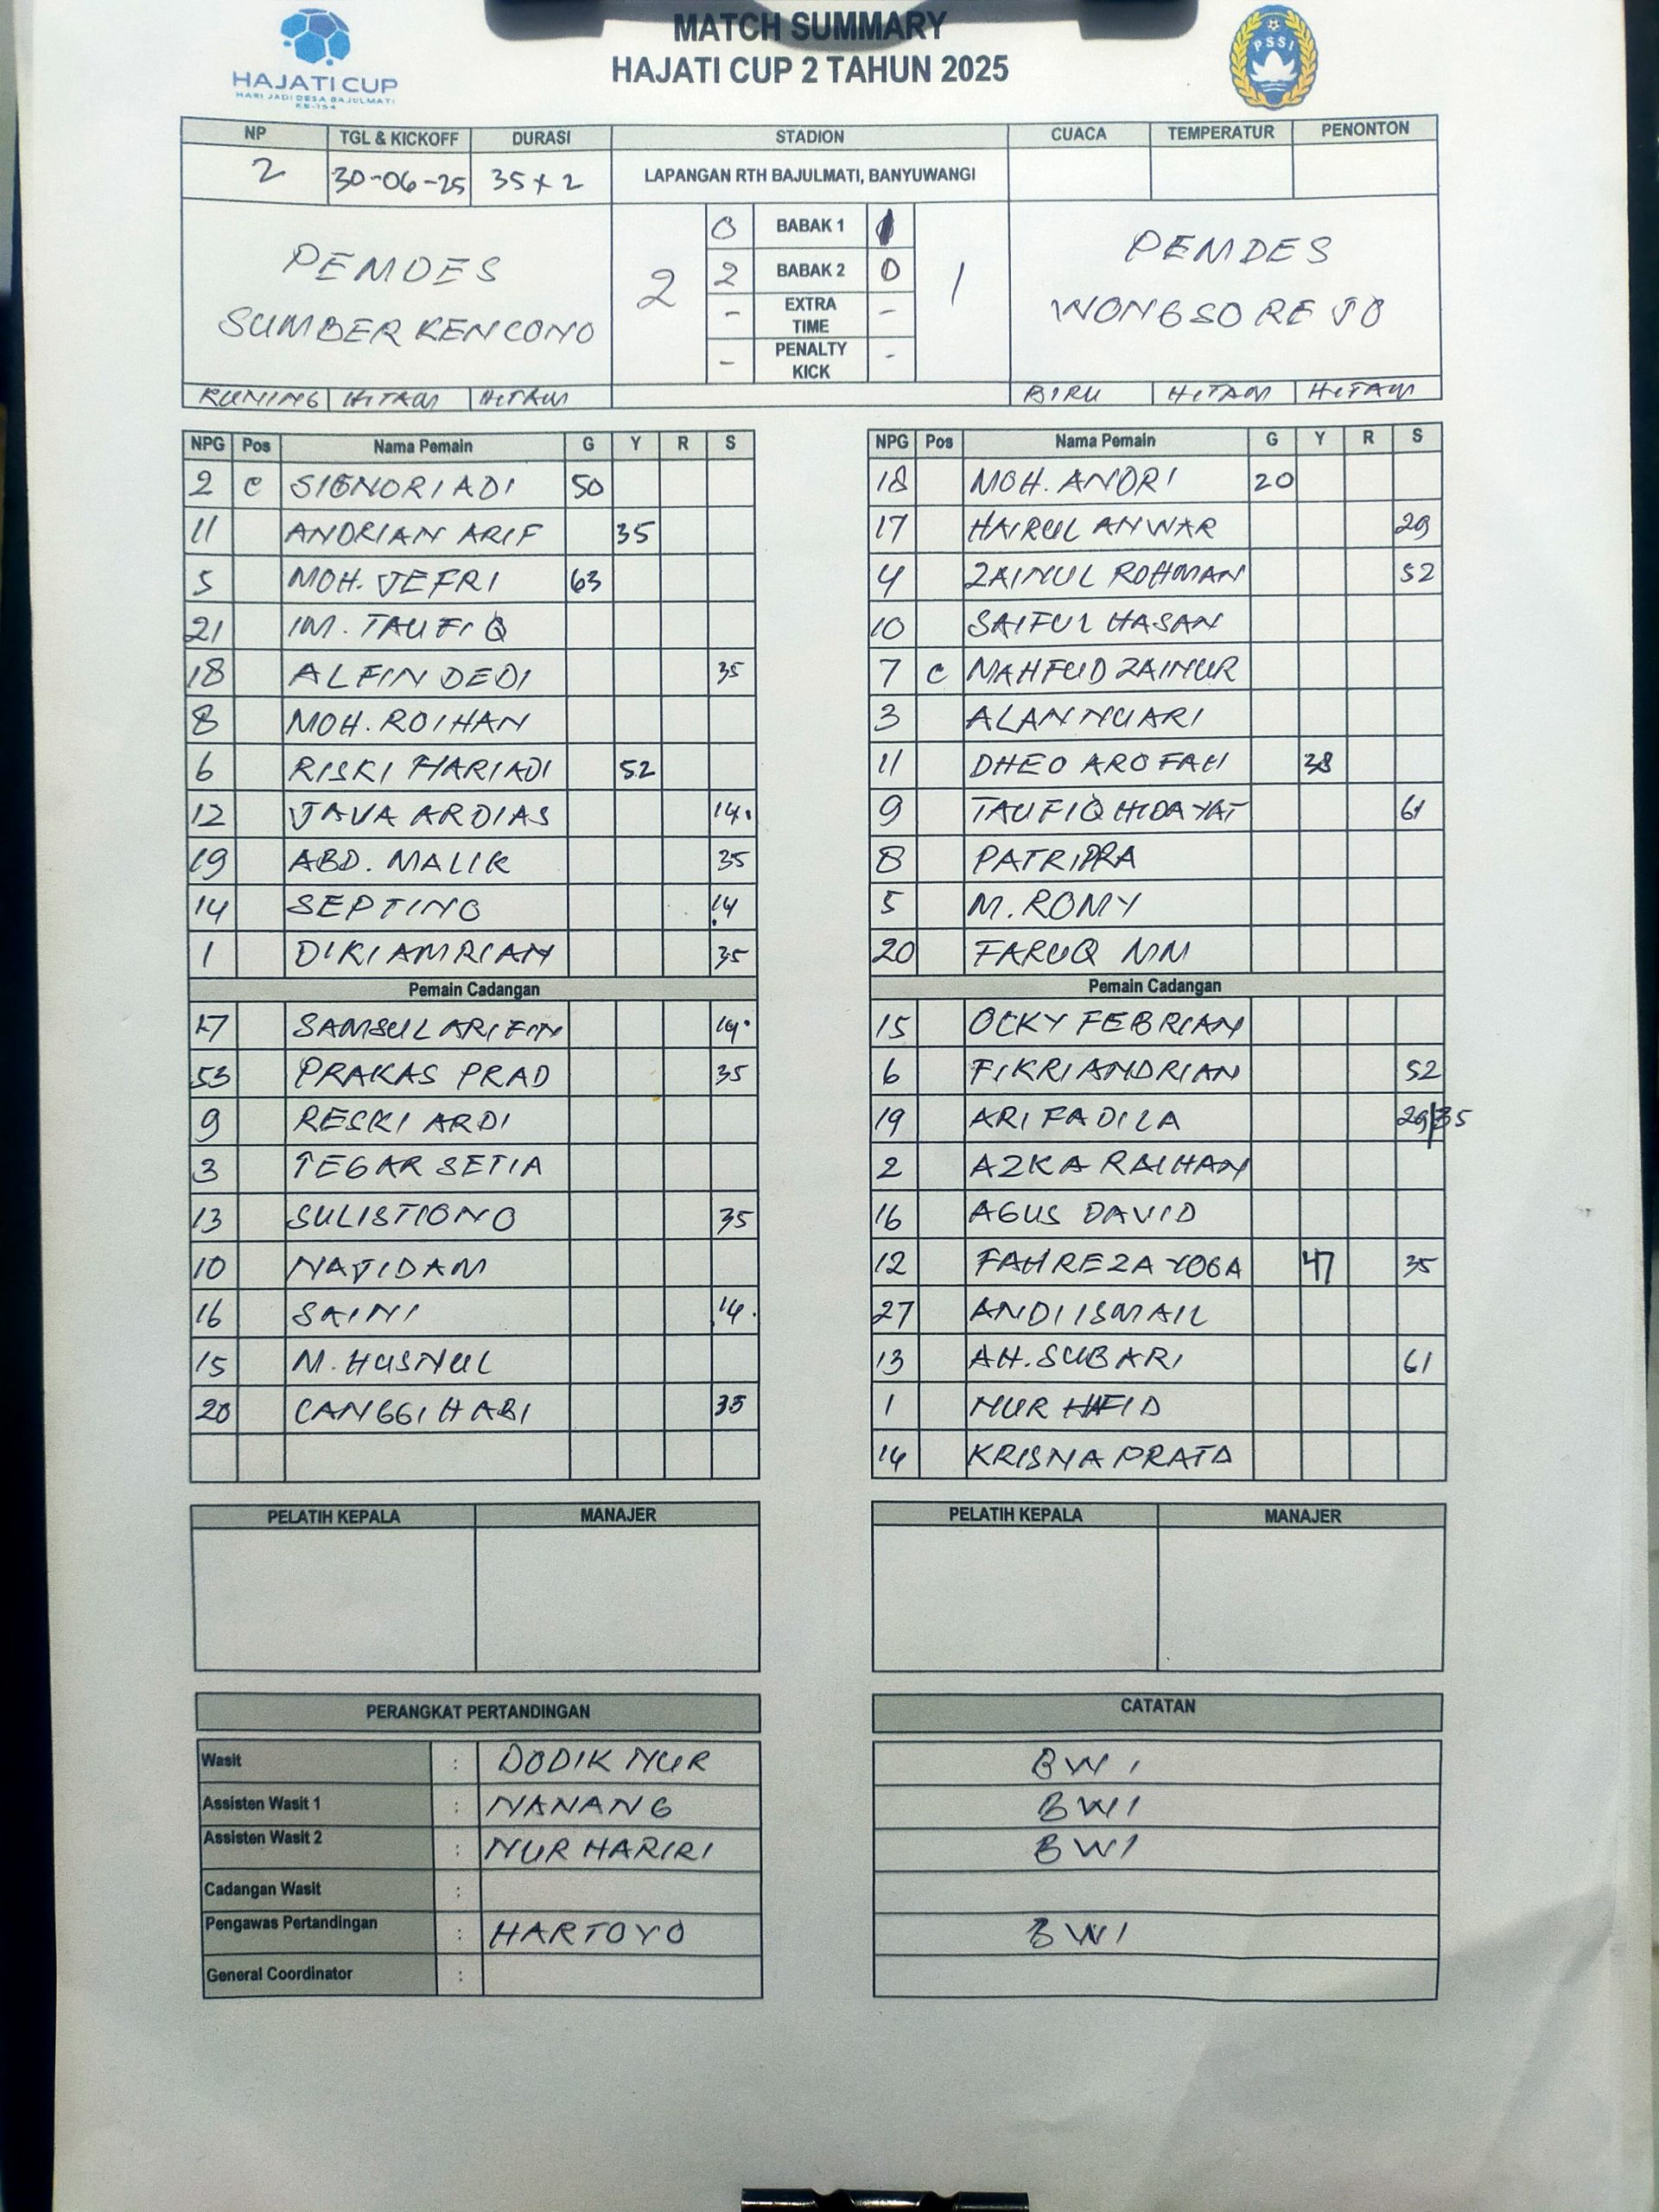 MATCH SUMMARY
HAJATI CUP 2 TAHUN 2025
HAJATI CUP
HARI JADI DESA BAJULMATI
KE-154
PSSI
NP TGL & KICKOFF DURASI STADION CUACA TEMPERATUR PENONTON
2 30-06-25 35x2 LAPANGAN RTH BAJULMATI, BANYUWANGI
PEMDES SUMBERKENCONO
2
0 BABAK 1
2 BABAK 2 0
- EXTRA TIME -
- PENALTY KICK -
1
PEMDES WONGSOREJO
KUNING HITAM HITAM BIRU HITAM HITAM
NPG Pos Nama Pemain G Y R S
2 C SIGNORI ADI 50
11 ANDRIAN ARIF 35
5 MOH. JEFRI 63
21 IM. TAUFIQ
18 ALFIN DEDI 35
8 MOH. ROIHAN
6 RISKI HARIADI 52
12 JAVA ARDIAS 14
19 ABD. MALIK 35
14 SEPTINO 14
1 DIKI AMRIAN 35
Pemain Cadangan
17 SAMSUL ARIFIN 14
53 PRAKAS PRAD 35
9 RESKI ARDI
3 TEGAR SETIA
13 SULISTIONO 35
10 NAJIDAM
16 SAINI 14
15 M. HUSNUL
20 CANGGI HABI 35
NPG Pos Nama Pemain G Y R S
18 MOH. ANDRI 20
17 HAIRUL ANWAR 29
4 ZAINUL ROHMAN 52
10 SAIFUL HASAN
7 C MAHFUD ZAINUR
3 ALAN NUARI
11 DHEO AROFAH 38
9 TAUFIQ HIDAYAT 61
8 PATRIPRA
5 M. ROMY
20 FARUQ NM
Pemain Cadangan
15 OCKY FEBRIAN
6 FIKRI ANDRIAN 52
19 ARI FADILA 29/35
2 AZKA RAIHAN
16 AGUS DAVID
12 FAHREZA YOGA 47 35
27 ANDI ISMAIL
13 AH. SUBARI 61
1 NUR HIFID
14 KRISNA PRATA
PELATIH KEPALA MANAJER
PELATIH KEPALA MANAJER
PERANGKAT PERTANDINGAN CATATAN
Wasit : DODIK NUR BWI
Assisten Wasit 1 : NANANG BWI
Assisten Wasit 2 : NUR HARIRI BWI
Cadangan Wasit :
Pengawas Pertandingan : HARTOYO BWI
General Coordinator :